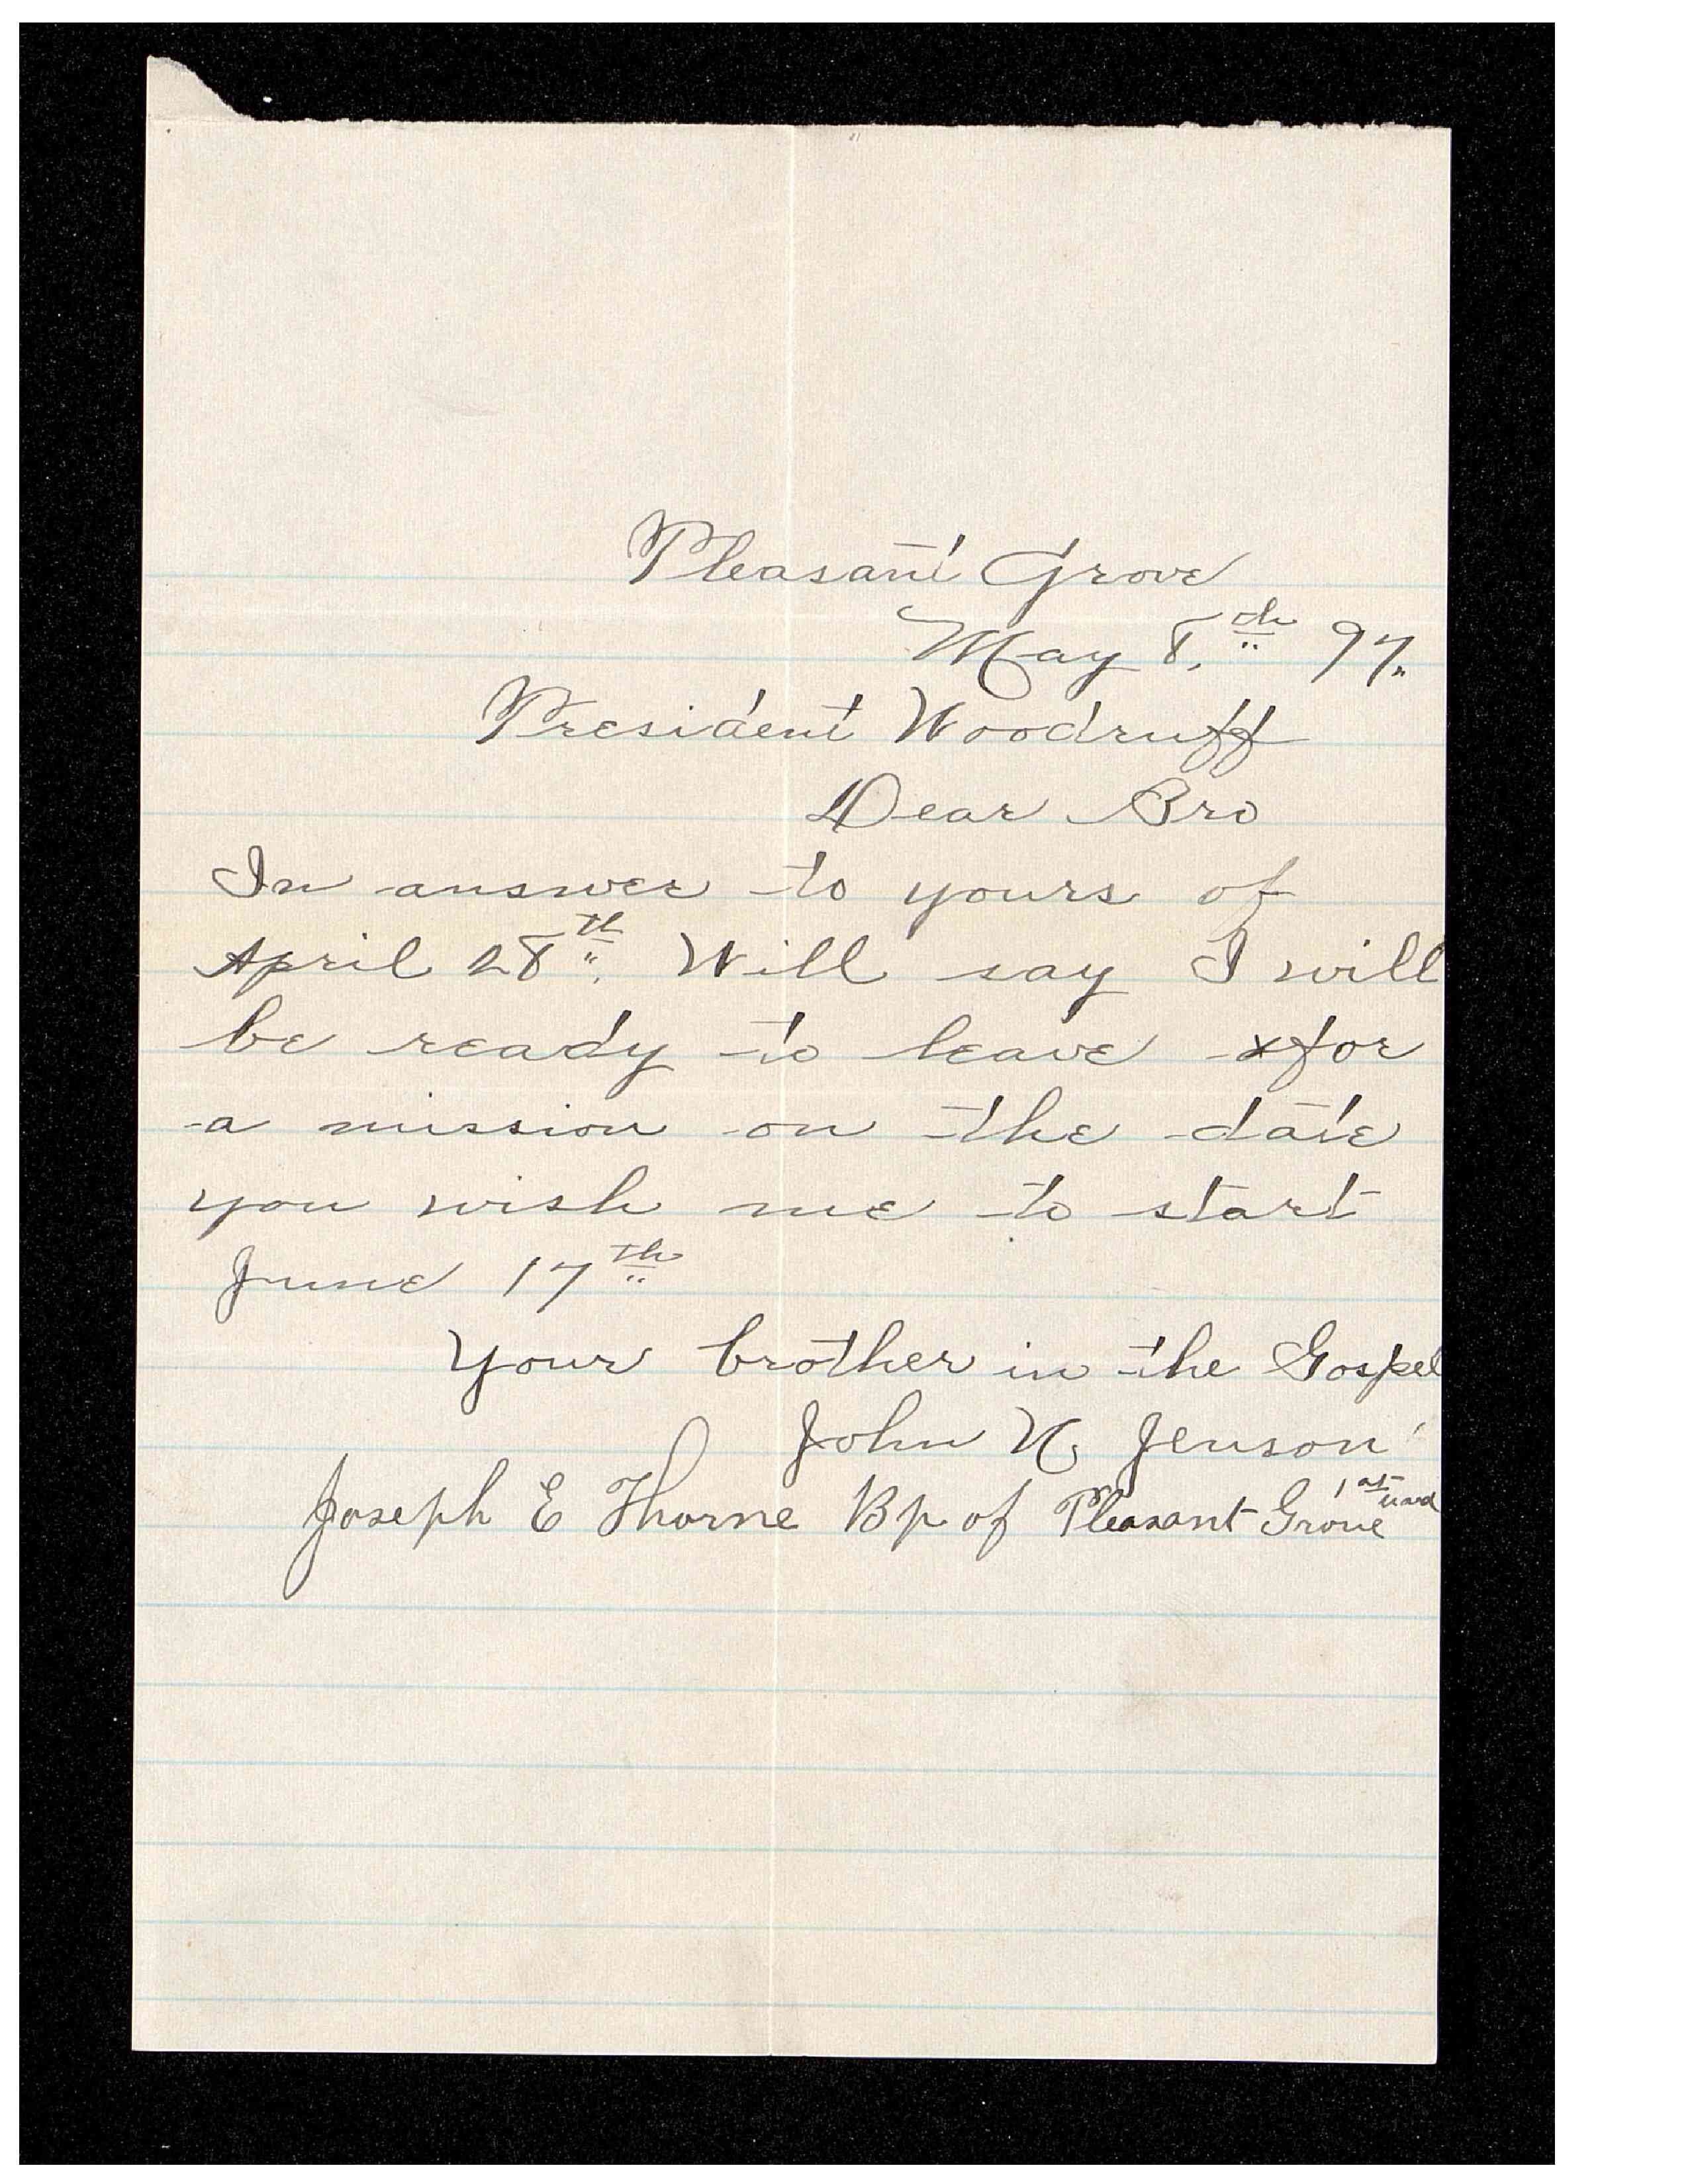 Pleasant Grove
May 8.th 97.
President Woodruff
Dear Bro
In answer to yours of
April 28th. Will say I will
be ready to leave for
a mission on the date
you wish me to start
June 17th
Your brother in the Gospel
John Jenson
Joseph E Thorne Bp of Pleasant Grove 1st ward